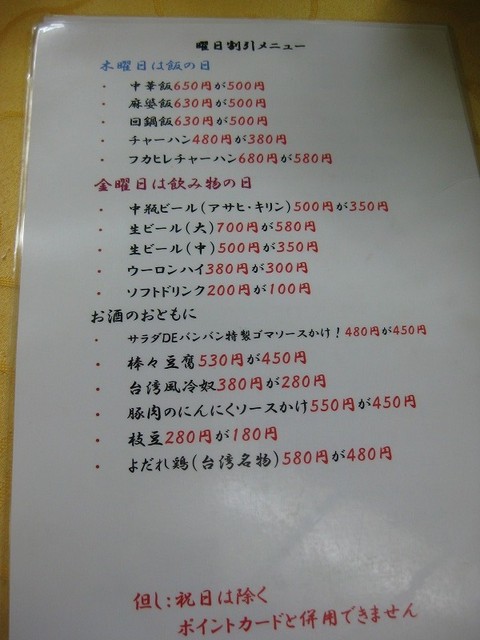 曜日割引メニュー
木曜日は飯の日
・ 中華飯650円が500円
・ 麻婆飯630円が500円
・ 回鍋飯630円が500円
・ チャーハン480円が380円
・ フカヒレチャーハン680円が580円
金曜日は飲み物の日
・ 中瓶ビール(アサヒ・キリン)500円が350円
・ 生ビール(大)700円が580円
・ 生ビール(中)500円が350円
・ ウーロンハイ380円が300円
・ ソフトドリンク200円が100円
お酒のおともに
・ サラダDEバンバン特製ゴマソースかけ！480円が450円
・ 棒々豆腐530円が450円
・ 台湾風冷奴380円が280円
・ 豚肉のにんにくソースかけ550円が450円
・ 枝豆280円が180円
・ よだれ鶏(台湾名物)580円が480円
但し:祝日は除く
ポイントカードと併用できません